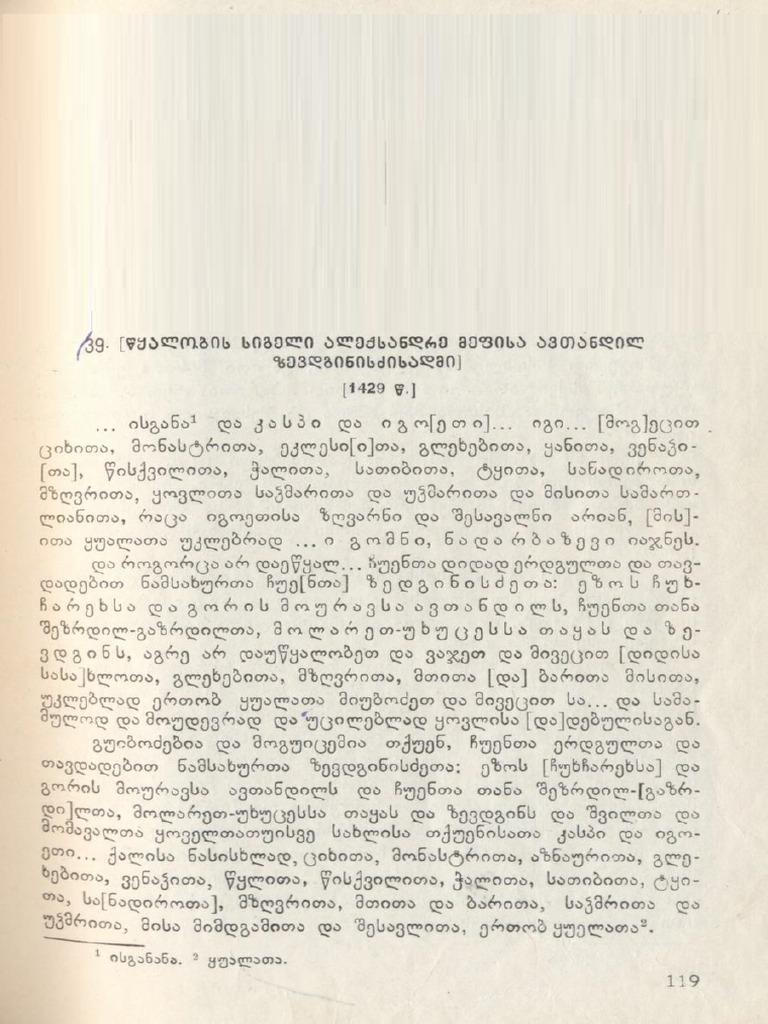 39. [წყალობის სიგელი ალექსანდრე მეფისა ავთანდილ
ზევდგინისძისადმი]
[1429 წ.]
... ისგანა¹ და კასპი და იგო[ეთი]... იგი... [მოგ]ეცით
ციხითა, მონასტრითა, ეკლესი[ი]თა, გლეხებითა, ყანითა, ვენაჴი-
[თა], წისქვილითა, ჭალითა, სათიბითა, ტყითა, სანადიროთა,
მზღვრითა, ყოვლითა საჴმარითა და უჴმარითა და მისითა სამართ-
ლიანითა, რაცა იგოეთისა ზღვარნი და შესავალნი არიან, [მის]-
ითა ყუალათა უკლებრად ...ი გომნი, ნადარბაზევი იაჯნეს.
და როგორცა არ დაეწყალ... ჩუენთა დიდად ერდგულთა და თავ-
დადებით ნამსახურთა ჩუე[ნთა] ზედგინისძეთა: ეზოს ჩუხ-
ჩარეხსა და გორის მოურავსა ავთანდილს, ჩუენთა თანა
შეზრდილ-გაზრდილთა, მოლარეთ-უხუცესსა თაყას და ზე-
ვდგინს, აგრე არ დაუწყალობეთ და ვაჯეთ და მივეცით [დიდისა
სასა]ხლოთა, გლეხებითა, მზღვრითა, მთითა [და] ბარითა მისითა,
უკლებლად ერთობ ყუალათა მიუბოძეთ და მივეცით სა... და სამა-
მულოდ და მოუდევრად და უცილებლად ყოვლისა [და]დებულისაგან.
გუიბოძებია და მოგუიცემია თქუენ, ჩუენთა ერდგულთა და
თავდადებით ნამსახურთა ზევდგინისძეთა: ეზოს [ჩუხჩარეხსა] და
გორის მოურავსა ავთანდილს და ჩუენთა თანა შეზრდილ-[გაზრ-
დი]ლთა, მოლარეთ-უხუცესსა თაყას და ზევდგინს და შვილთა და
მომავალთა ყოველთათუისვე სახლისა თქუენისათა კასპი და იგო-
ეთი... ქალისა ნასისხლად, ციხითა, მონასტრითა, აზნაურითა, გლე-
ხებითა, ვენაჴითა, წყლითა, წისქვილითა, ჭალითა, სათიბითა, ტყი-
თა, სა[ნადიროთა], მზღვრითა, მთითა და ბარითა, საჴმრითა და
უჴმრითა, მისა მიმდგამითა და შესავლითა, ერთობ ყუელათა².
¹ ისგანანა. ² ყუალათა.
119